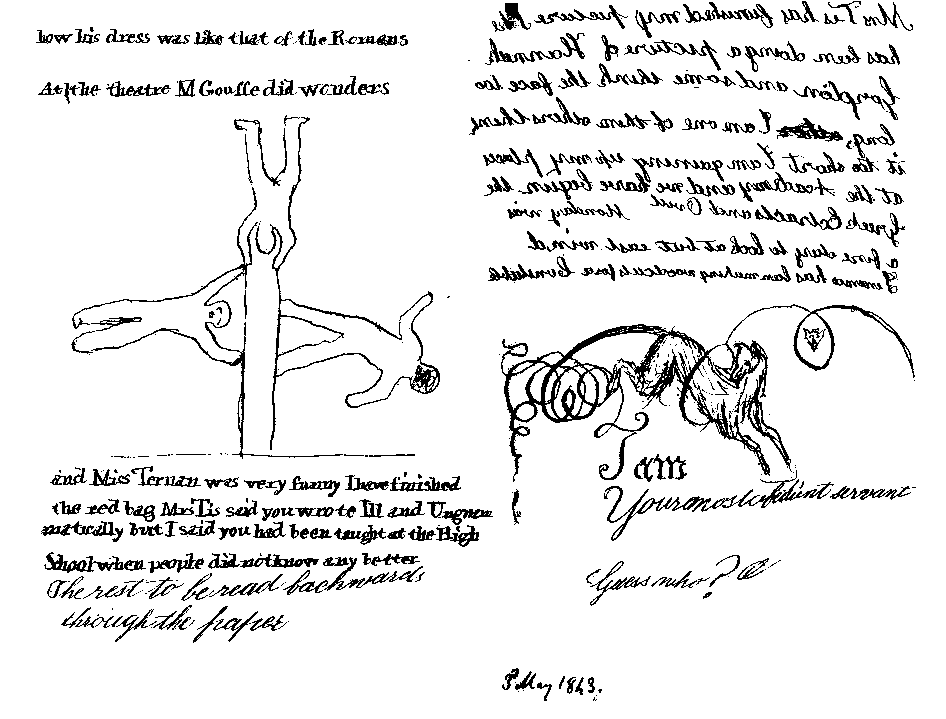 how his dress was like that of the Romans
At the theatre M Gouffe did wonders
and Miss Ternan was very funny I have finished
the red bag Mrs Tis said you wrote Ill and Ungram
matically but I said you had been taught at the High
School when people did not know any better
The rest to be read backwards
through the paper
Mrs Tis has finished my picture She
has been doing a picture of Hannah
and some think the face too
long, I am one of them others think
it too short I am gaining up my places
at the Academy and we have begun the
Greek Extracts and Ovid Monday was
a fine day to look at but east wind
Jemima has been making for a
I am
Your most obedient servant
Guess who?
May 1843.